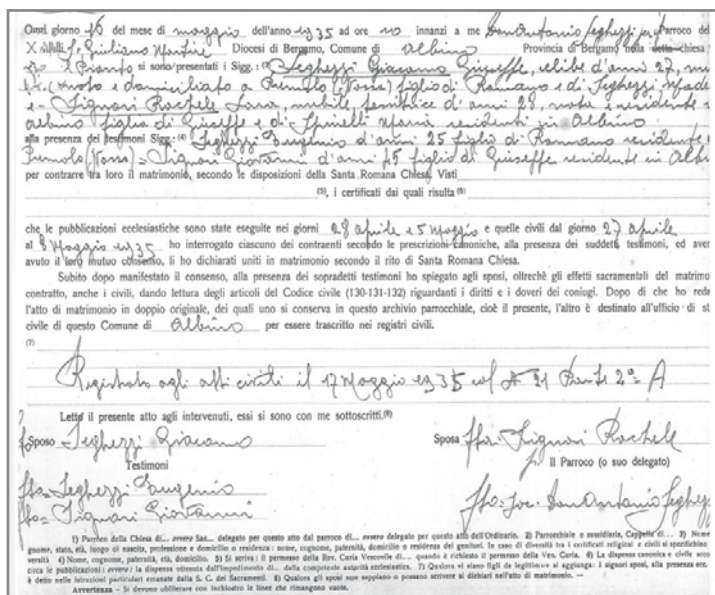 Oggi giorno 16 del mese di maggio dell'anno 1935 ad ore 10 innanzi a me Don Antonio Seghezzi Parroco del
S. Giuliano Martire Diocesi di Bergamo, Comune di Albino Provincia di Bergamo nella detta chiesa
Pianto si sono presentati i Sigg.: (3) Seghezzi Giacomo Giuseffe, celibe d'anni 27,
nato e domiciliato a Premolo (Nossa) figlio di Romano e di Seghezzi
e Signori Rachele nubile, d'anni 28, nata e residente
Albino figlia di Giuseffe e di Spinelli Maria residenti in Albino
alla presenza dei testimoni Sigg.: (4) Seghezzi Eugenio d'anni 25 figlio di Romano residente
Premolo (Nossa) = Signori Giovanni d'anni 45 figlio di Giuseffe residente in
per contrarre tra loro il matrimonio, secondo le disposizioni della Santa Romana Chiesa. Visti
(5), i certificati dai quali risulta (6)
che le pubblicazioni ecclesiastiche sono state eseguite nei giorni 28 aprile e 5 Maggio e quelle civili dal giorno 27 aprile
al 8 Maggio 1935 ho interrogato ciascuno dei contraenti secondo le prescrizioni canoniche, alla presenza dei suddetti testimoni, ed aver
avuto il loro mutuo consenso, li ho dichiarati uniti in matrimonio secondo il rito di Santa Romana Chiesa.
Subito dopo manifestato il consenso, alla presenza dei sopradetti testimoni ho spiegato agli sposi, oltrechè gli effetti sacramentali del matrimo
contratto, anche i civili, dando lettura degli articoli del Codice civile (130-131-132) riguardanti i diritti e i doveri dei coniugi. Dopo di che ho reda
l'atto di matrimonio in doppio originale, dei quali uno si conserva in questo archivio parrocchiale, cioè il presente, l'altro è destinato all'ufficio di st
civile di questo Comune di Albino per essere trascritto nei registri civili.
(7)
Registrato agli atti civili il 17 Maggio 1935 col N 21 Parte 2ª A
Letto il presente atto agli intervenuti, essi si sono con me sottoscritti.(8)
Sposo Seghezzi Giacomo Sposa fto. Signori Rachele
Testimoni Il Parroco (o suo delegato)
fto= Seghezzi Eugenio
fto= Signori Giovanni fto. Sac. Don Antonio Seghezzi
1) Parroco della Chiesa di... ovvero Sac... delegato per questo atto dal parroco di... ovvero delegato per questo atto dell'Ordinario. 2) Parrocchiale o sussidiaria, Cappella di... 3) Nome
gnome, stato, età, luogo di nascita, professione e domicilio o residenza: nome, cognome, paternità, domicilio o residenza dei genitori. In caso di diversità tra i certificati religiosi e civili si specifichino
versità 4) Nome, cognome, paternità, età, domicilio. 5) Si scriva: il permesso della Rev. Curia Vescovile di... quando è richiesto il permesso della Ven. Curia. 6) La dispensa canonica e civile
circa le pubblicazioni: ovvero: la dispensa ottenuta dall'impedimento di... dalla competente autorità ecclesiastica. 7) Qualora vi siano figli da legittimare si aggiunga: I signori sposi, alla presenza ecc.
è detto nelle istruzioni particolari emanate dalla S. C. dei Sacramenti. 8) Qualora gli sposi non sappiano o possano scrivere si dichiari nell'atto di matrimonio. —
Avvertenza - Si devono obliterare con inchiostro le linee che rimangono vuote.